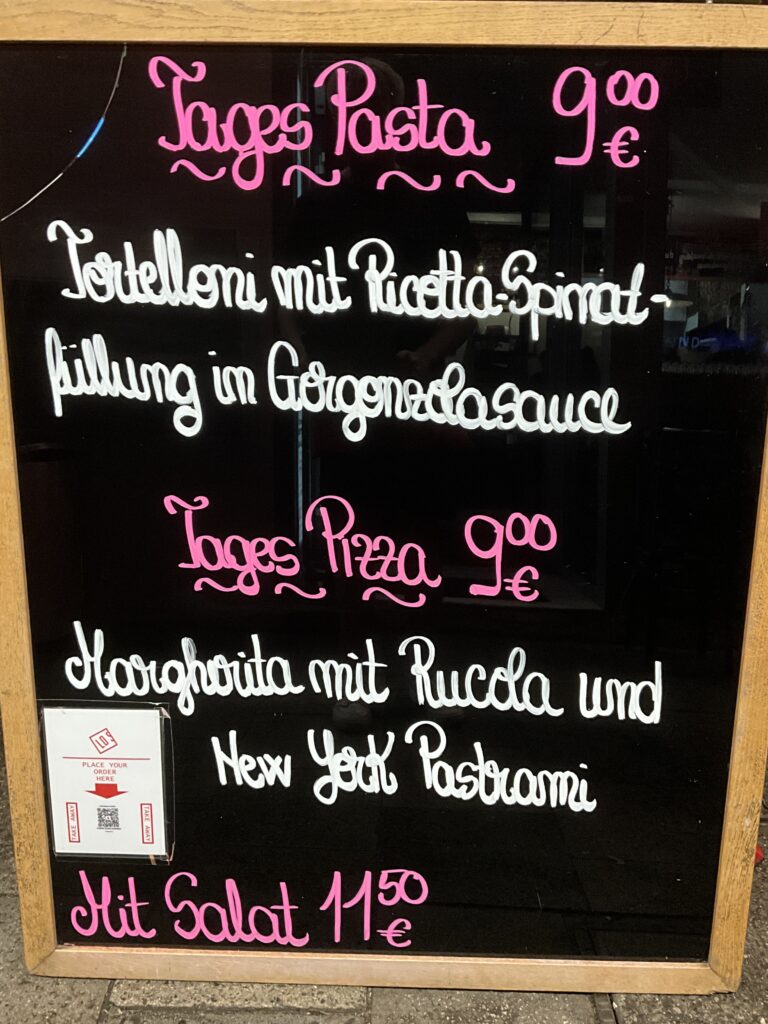 Tages Pasta 900 €
Tortelloni mit Ricotta-Spinat-
füllung in Gorgonzolasauce
Tages Pizza 900 €
Margherita mit Rucola und
New York Pastrami
LO
PLACE YOUR
ORDER
HERE
TAKE AWAY
TAKE AWAY
Mit Salat 1150 €